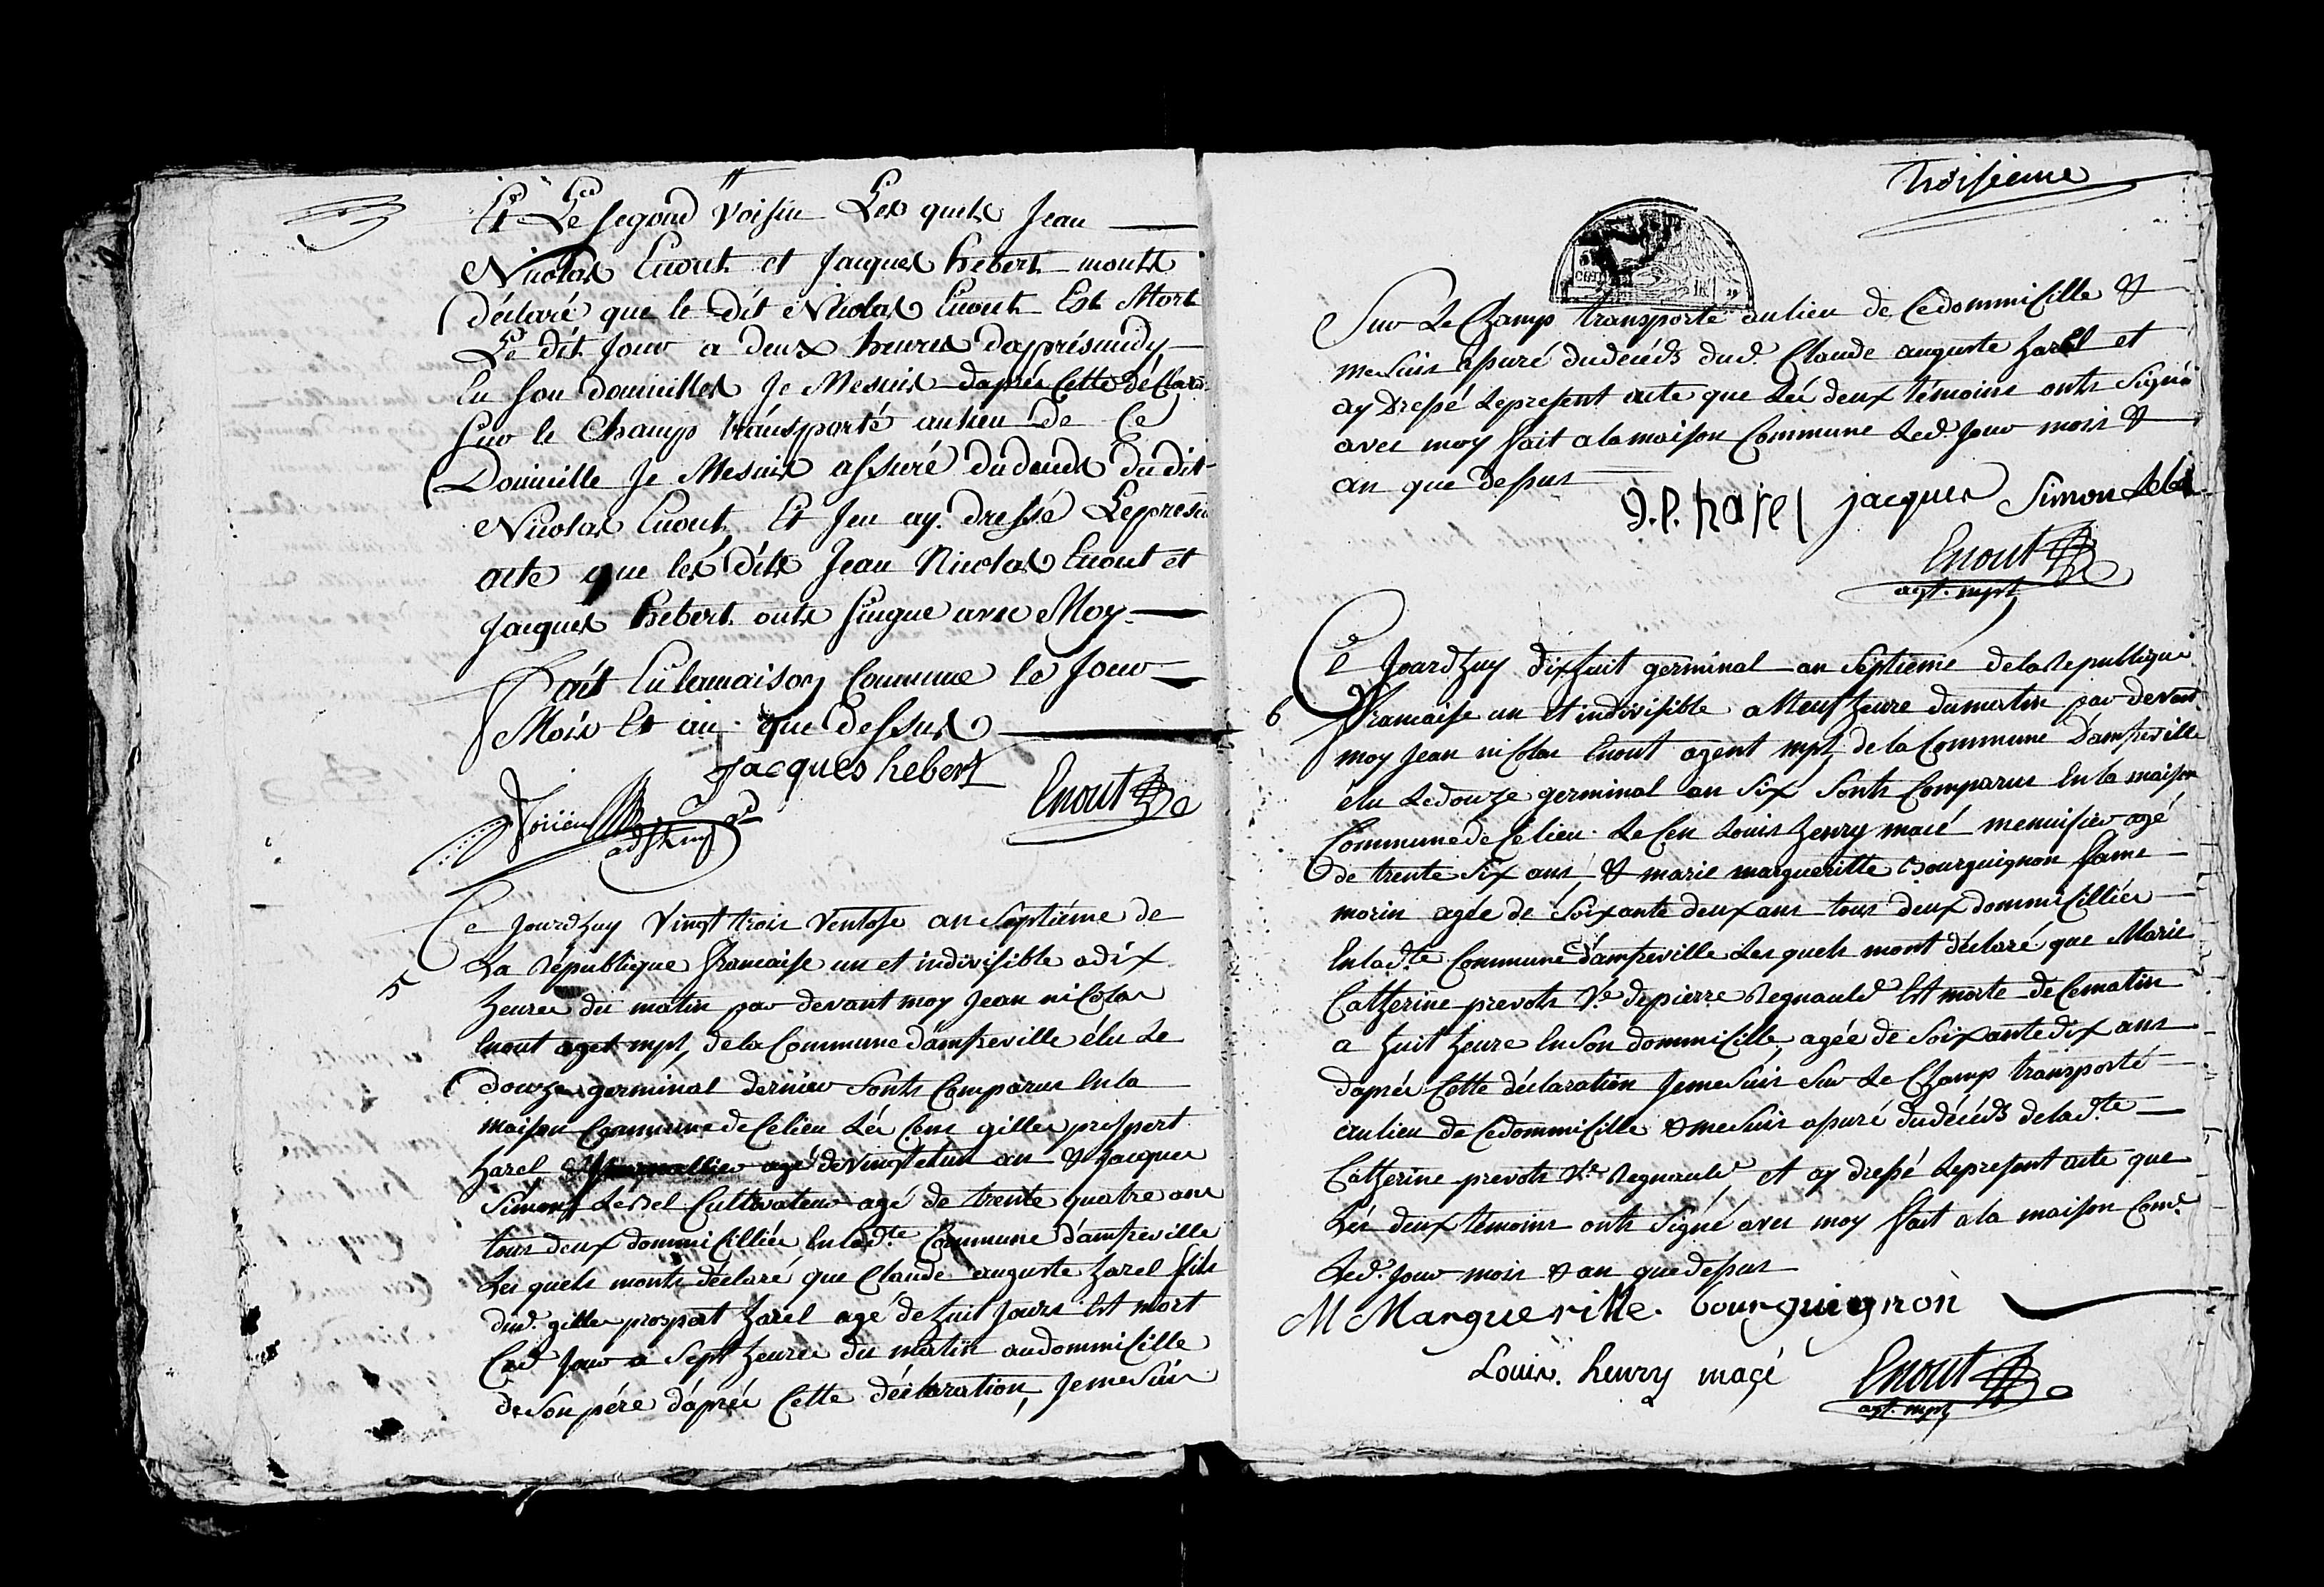 Et Le segond voisin Les quels Jean
Nicolas Enout et Jacques hebert monts
déclaré que le dit Nicolas Enout Est Mort
Le dit Jour a deux heures dapprésmidy
En son domicilles Je Mesuis daprés Cette déClara
sur le Champ tránsporté aulieu De Ce
Domicille Je Mesuis assuré du deceds du dit
Nicolas Enout Et Jen ay dressé Lepresen
acte que les dits Jean Nicolas Enout et
Jacques hebert onts singne avec Moy
fait En lamaison Commune le Jour
Mois Et an que Dessus
Jacques hebert
Enout
adjt
Ce Jourdhuy vingt trois Ventose an Septiéme de
5
La République francaise un et indivisible a dix
heures du matin par devant moy Jean nicolas
Enout aget mpl, de la Commune damfreville élu Le
douze germinal dernier sonts Comparus En la
maison Commune de Célieu Lés Cens gilles prospert
harel journallier agé de vingt et un an & Jacques
Simon Lebel Cultivateur agé de trente quatre ans
tous deux dommiciliés En lad.te Commune damfreville
Les quels monts déclaré que Claude auguste harel fils
dud. gilles prospert harel agé de huit Jours Est mort
Ced. Jour a Sept heures du matin audommicille
de Son pére d'aprés Cette déclaration, Jeme Suis
troisieme
Sur Le Champ transporté aulieu de Cedommicille &
me Suis assuré dudecéds dud. Claude auguste harel et
ay Dressé Lepresent acte que Lés deux témoins onts Signé
avec moy fait a lamaison Commune Led. Jour mois &
an que dessus
J.P. harel jacques Simon Lebel
Enout
agt. mpl
Ce Jourdhuy dixhuit germinal an Septieme de la Republique
6
francaise un et indivisible a Neuf heure du matin par devant
moy Jean nicolas Enout agent mpl. de la Commune Damfreville
élu Ledouze germinal an Six Sonts Comparus En la maison
Commune de Célieu. Le Cen Louis henry macé menuisier agé
de trente Six ans, & marie margueritte Bourguignon fame
morin agée de Soixante deux ans tous deux dommicilliés
En lad.te Commune d'amfreville Les quels mont déclaré que Marie
Catherine prevots Ve. de pierre Regnauld Est morte de Cematin
a huit heure En Son dommicille, agée de Soixante dix ans
d'aprés Cette déclaration Jeme Suis Sur Le Champ transporté
aulieu de Cedommicille & me Suis assuré dudécéds delad.te
Catherine prevots Ve. Regnauld et ay dressé Lepresent acte que
Lés deux témoins onts Signé avec moy fait a la maison Come.
Led. Jour mois & an que dessus
M Margueritte. bourguignon
Louis. henry maçé
Enout
agt. mpl